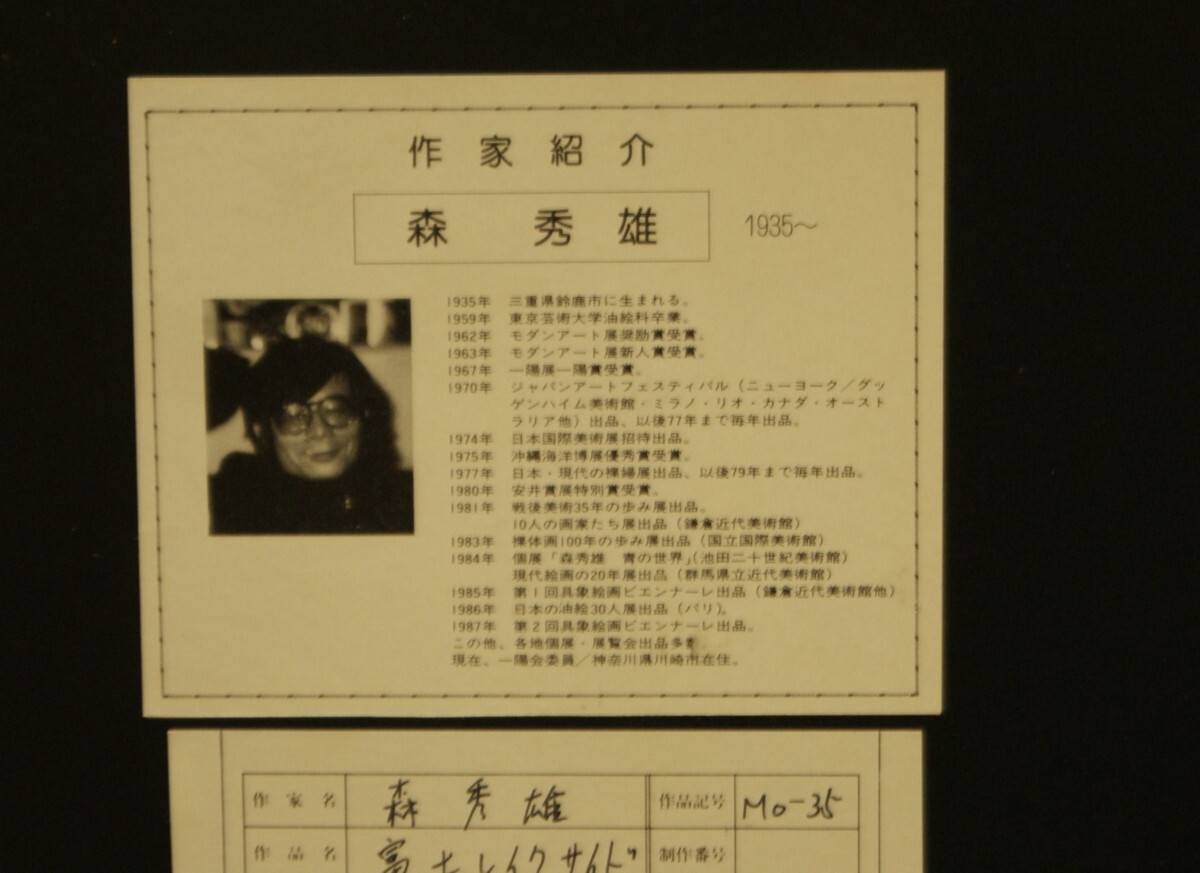 作家紹介
森 秀雄 1935〜
1935年 三重県鈴鹿市に生まれる。
1959年 東京芸術大学油絵科卒業。
1962年 モダンアート展奨励賞受賞。
1963年 モダンアート展新人賞受賞。
1967年 一陽展一陽賞受賞。
1970年 ジャパンアートフェスティバル（ニューヨーク／グッ
ゲンハイム美術館・ミラノ・リオ・カナダ・オースト
ラリア他）出品、以後77年まで毎年出品。
1974年 日本国際美術展招待出品。
1975年 沖縄海洋博展優秀賞受賞。
1977年 日本・現代の裸婦展出品、以後79年まで毎年出品。
1980年 安井賞展特別賞受賞。
1981年 戦後美術35年の歩み展出品。
10人の画家たち展出品（鎌倉近代美術館）
1983年 裸体画100年の歩み展出品（国立国際美術館）
1984年 個展「森秀雄 青の世界」（池田二十世紀美術館）
現代絵画の20年展出品（群馬県立近代美術館）
1985年 第1回具象絵画ビエンナーレ出品（鎌倉近代美術館他）
1986年 日本の油絵30人展出品（パリ）。
1987年 第2回具象絵画ビエンナーレ出品。
この他、各地個展・展覧会出品多数。
現在、一陽会委員／神奈川県川崎市在住。
作家名 森秀雄 作品記号 Mo-35
作品名 富士レイクサイド 制作番号